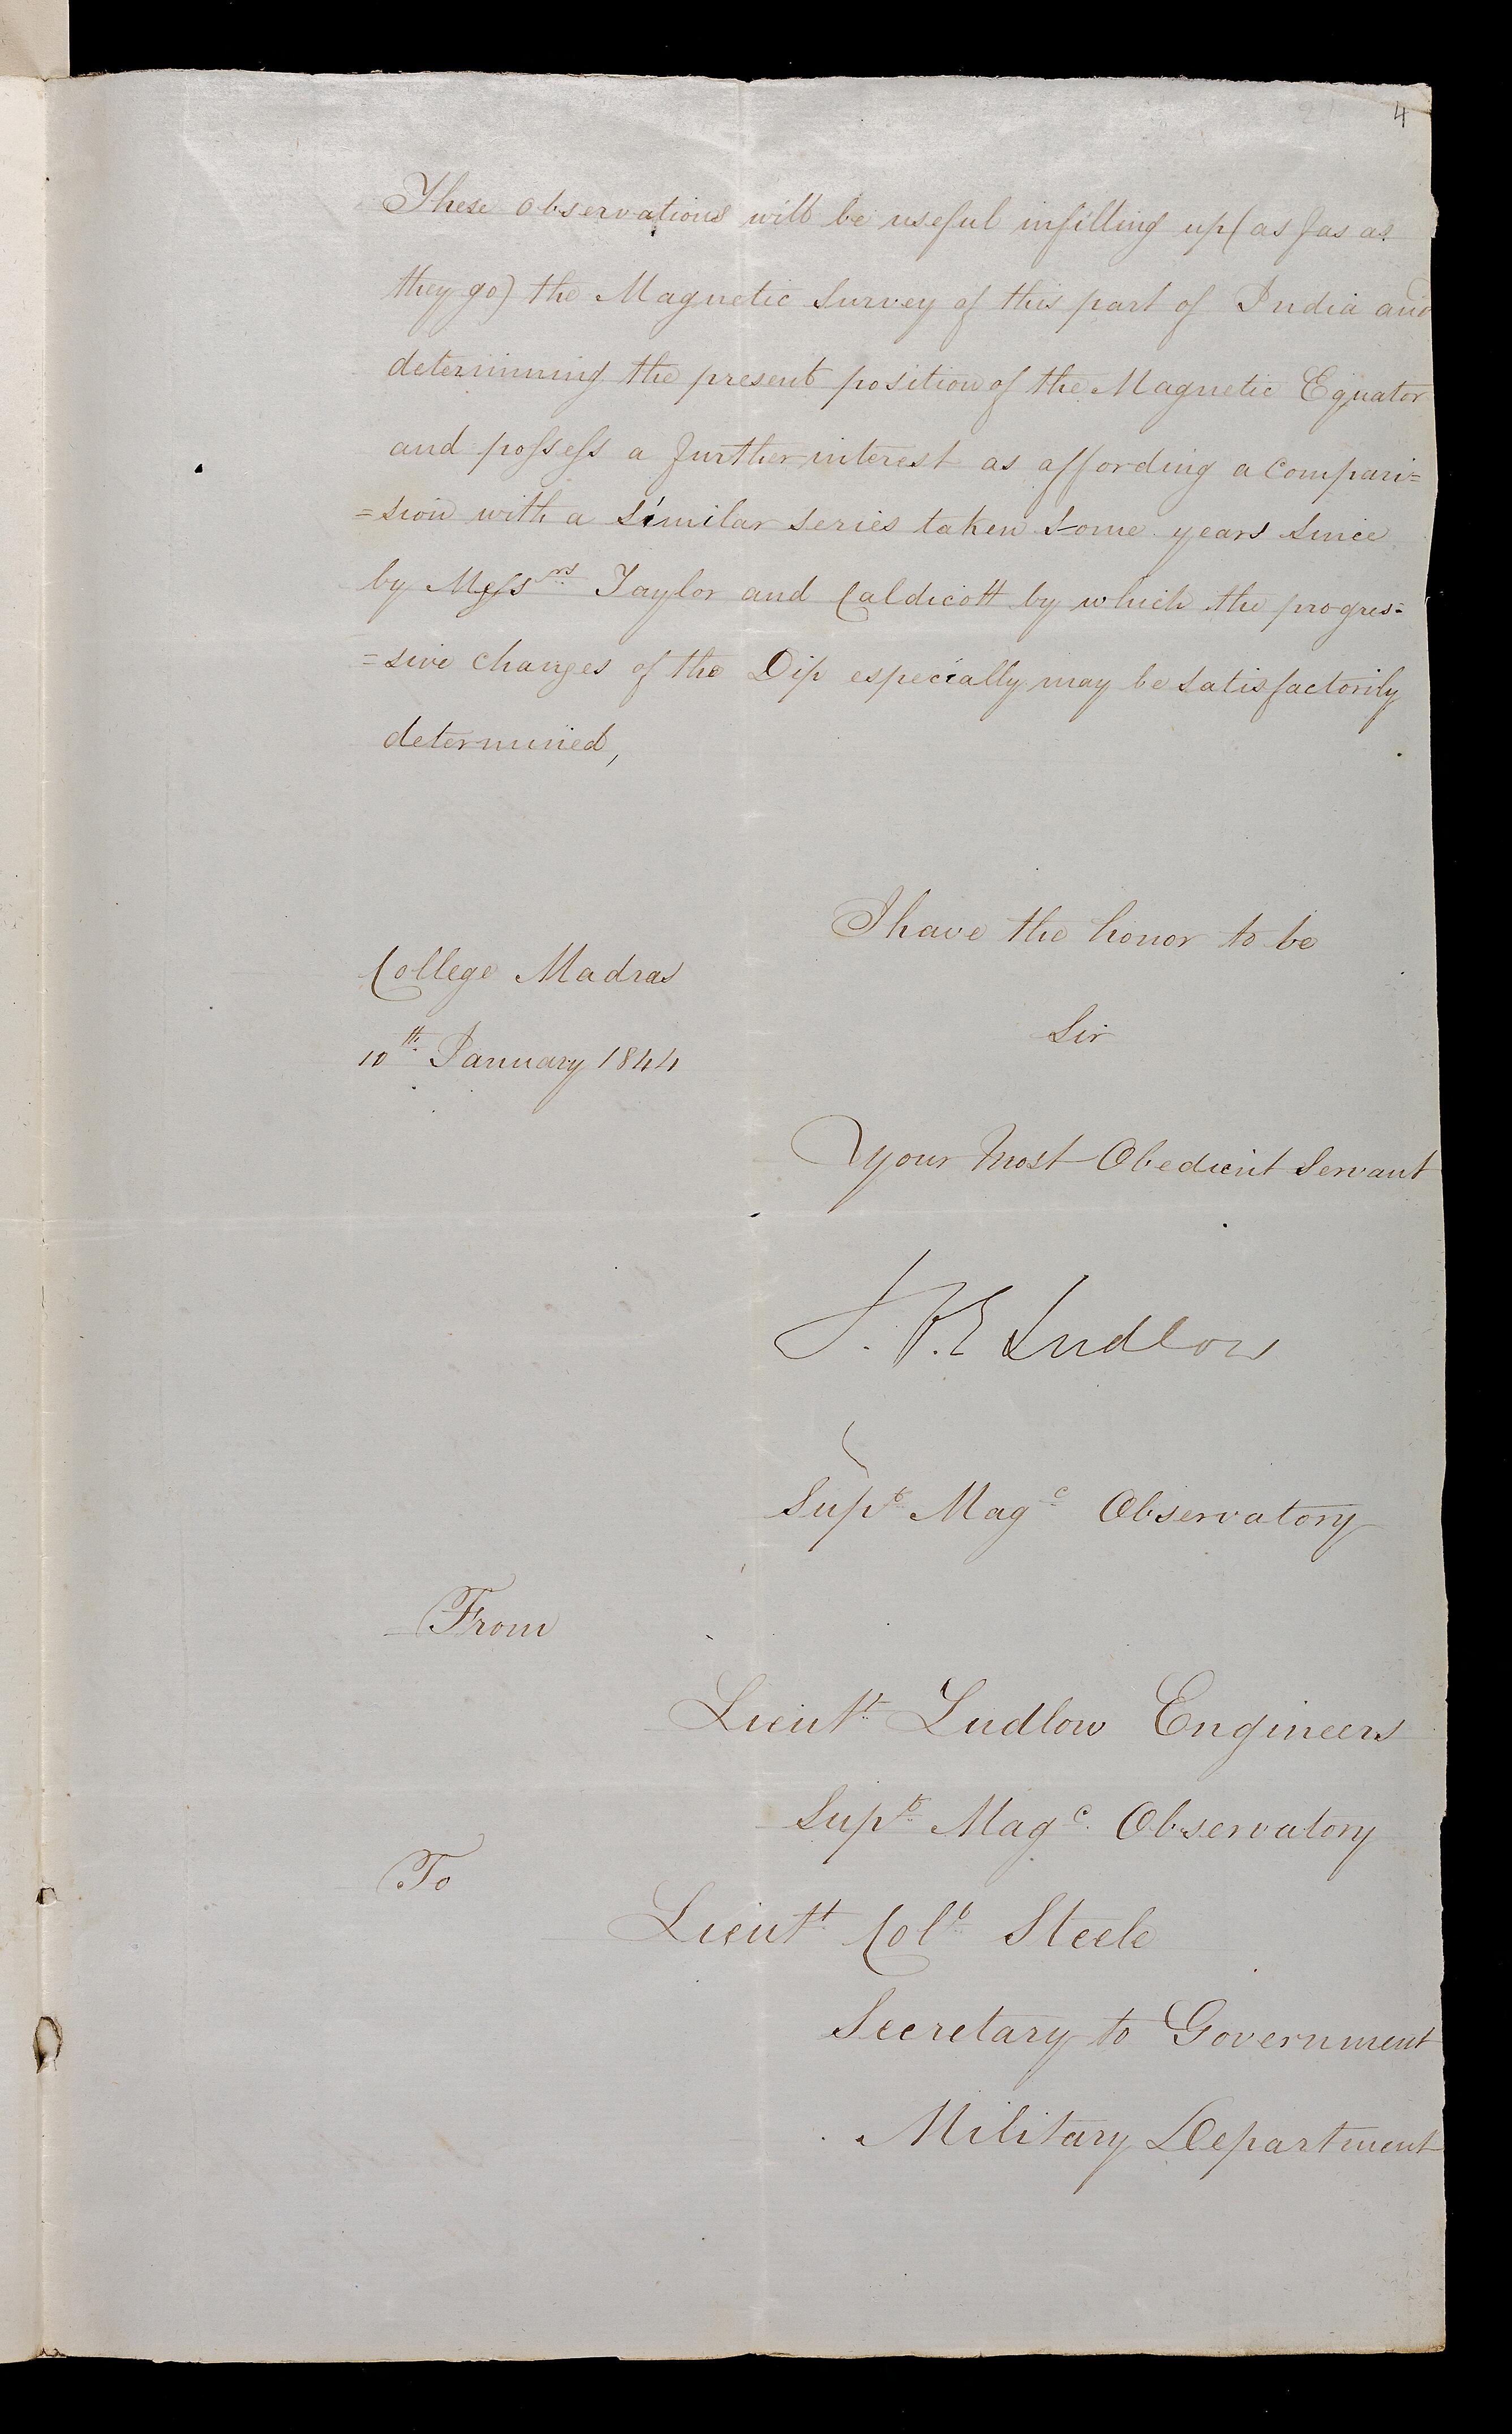 4
These observations will be useful in filling up (as far as
they go) the Magnetic Survey of this part of India and
determining the present position of the Magnetic Equator
and possess a further interest as affording a compari=
=sion with a similar series taken some years since
by Messrs Taylor and Caldicott by which the progres=
=sive changes of the Dip especially may be satisfactorily
determined,
I have the honor to be
College Madras
Sir
10th January 1844
Your Most Obedient Servant
Ludlow
Supt Magc Observatory
From
Lieutt Ludlow Engineers
Supt Magc Observatory
To
Lieutt Coll Steele
Secretary to Government
Military Department